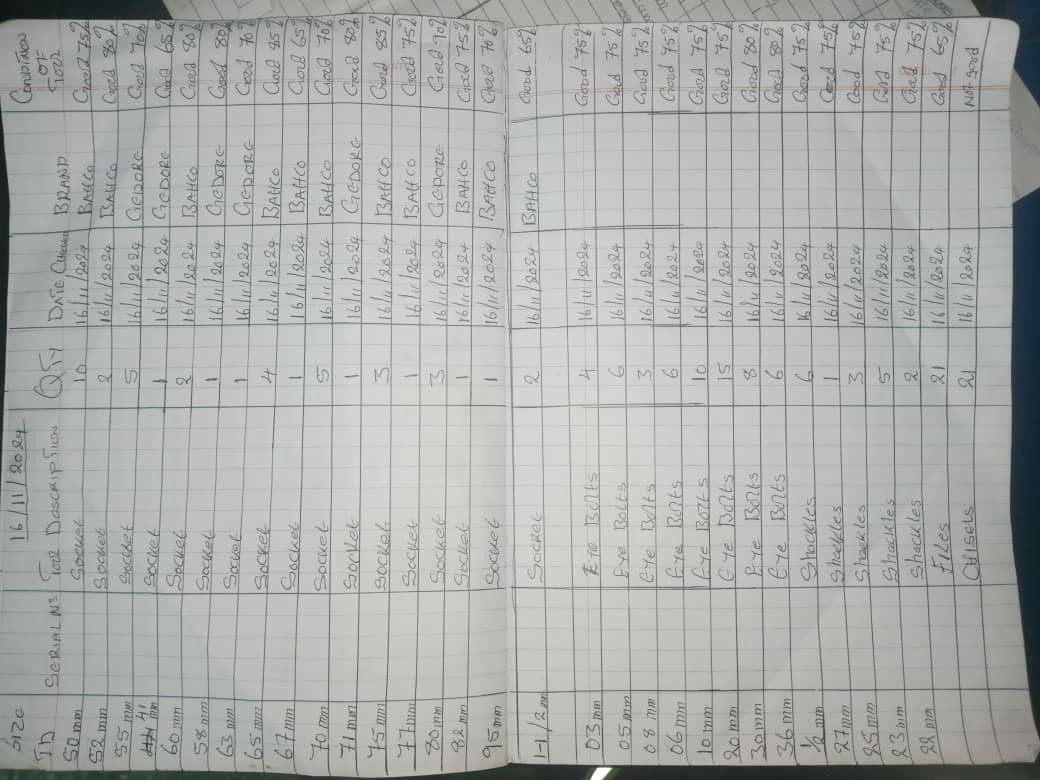 16/11/2024
Size ID SERIAL No Tool Description QTY Date Checked BRAND Condition OF Tool
50 mm Socket 10 16/11/2024 BAHCO Good 75%
52 mm Socket 2 16/11/2024 BAHCO Good 80%
55 mm Socket 5 16/11/2024 GEDORE Good 70%
41 mm Socket 1 16/11/2024 GEDORE Good 65%
60 mm Socket 2 16/11/2024 BAHCO Good 80%
58 mm Socket 1 16/11/2024 GEDORE Good 80%
63 mm Socket 1 16/11/2024 GEDORE Good 70%
65 mm Socket 4 16/11/2024 BAHCO Good 85%
67 mm Socket 1 16/11/2024 BAHCO Good 65%
70 mm Socket 5 16/11/2024 BAHCO Good 70%
71 mm Socket 1 16/11/2024 GEDORE Good 80%
75 mm Socket 3 16/11/2024 BAHCO Good 85%
77 mm Socket 1 16/11/2024 BAHCO Good 75%
80 mm Socket 3 16/11/2024 GEDORE Good 70%
82 mm Socket 1 16/11/2024 BAHCO Good 75%
95 mm Socket 1 16/11/2024 BAHCO Good 70%
1-1/2 mm Socket 2 16/11/2024 BAHCO Good 65%
03 mm Eye Bolts 4 16/11/2024 Good 75%
05 mm Eye Bolts 6 16/11/2024 Good 75%
08 mm Eye Bolts 3 16/11/2024 Good 75%
06 mm Eye Bolts 6 16/11/2024 Good 75%
10 mm Eye Bolts 10 16/11/2024 Good 75%
20 mm Eye Bolts 15 16/11/2024 Good 75%
30 mm Eye Bolts 8 16/11/2024 Good 80%
36 mm Eye Bolts 6 16/11/2024 Good 80%
1/2 mm Shackles 6 16/11/2024 Good 75%
27 mm Shackles 1 16/11/2024 Good 75%
25 mm Shackles 3 16/11/2024 Good 75%
23 mm Shackles 5 16/11/2024 Good 75%
22 mm Shackles 2 16/11/2024 Good 75%
Files 21 16/11/2024 Good 65%
Chisels 21 16/11/2024 Not good